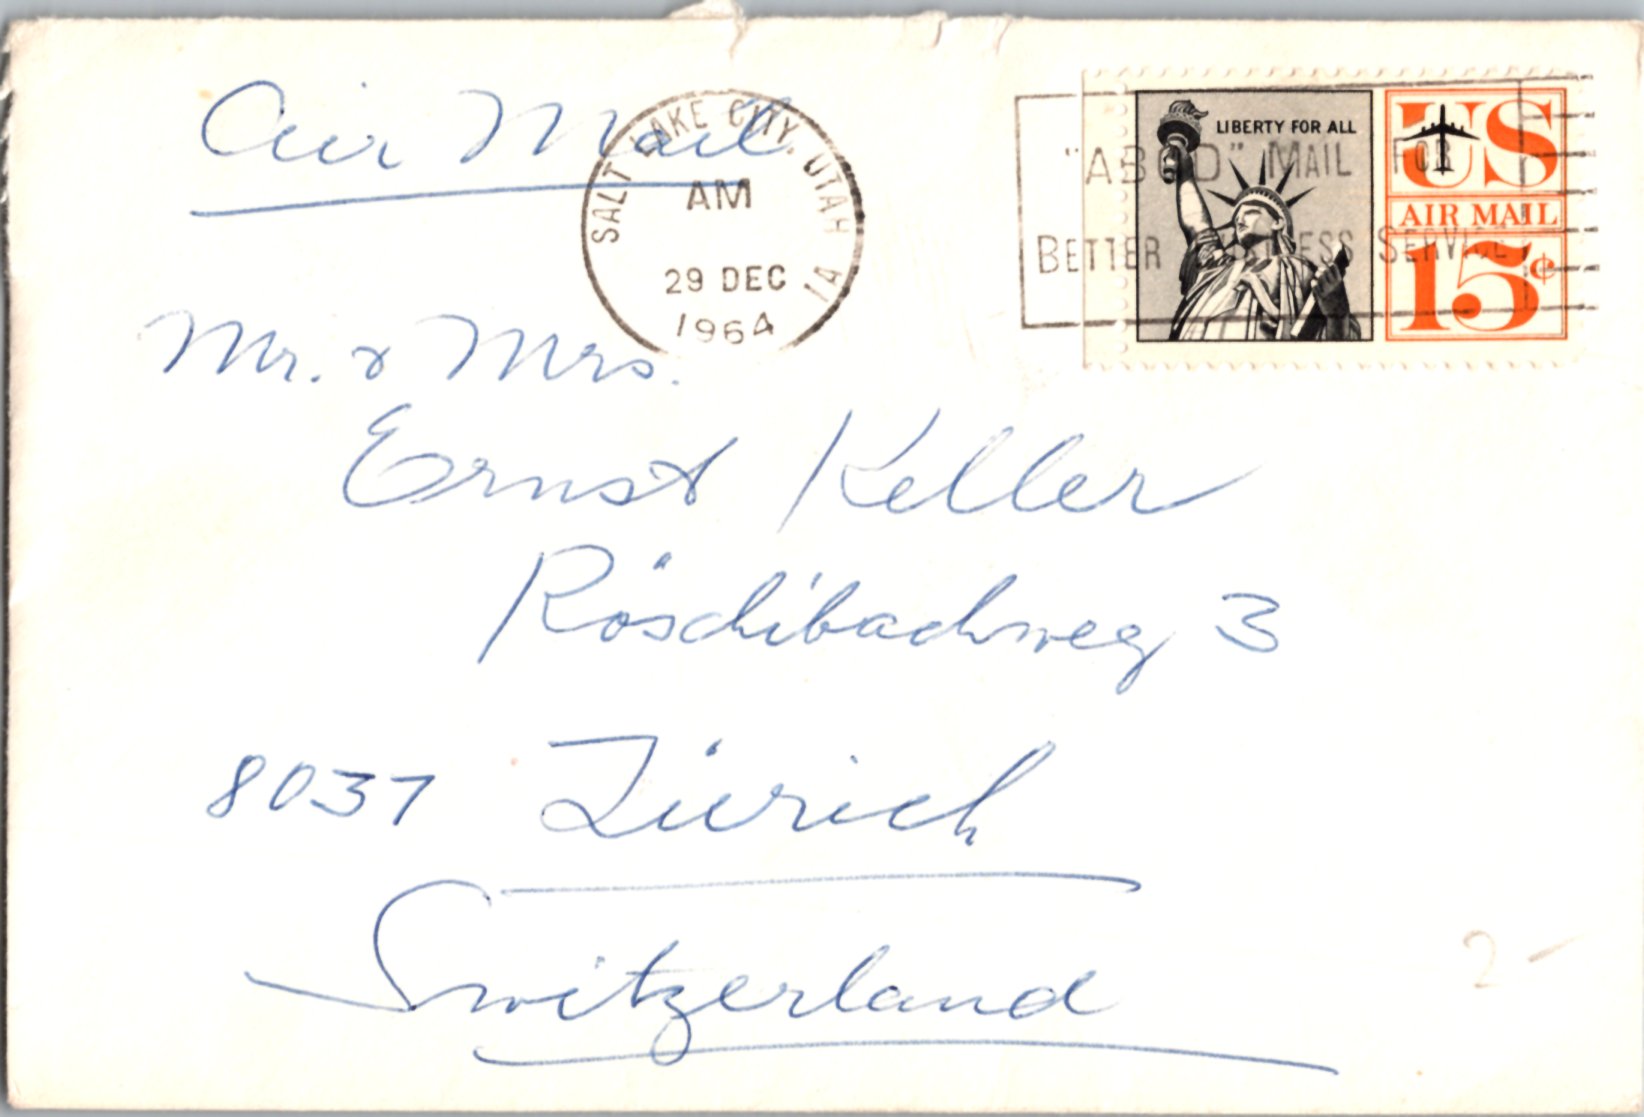 Air Mail
SALT LAKE CITY, UTAH
AM
29 DEC
1964
1A
"ABCD" MAIL FOR
BETTER BUSINESS SERVICE
LIBERTY FOR ALL
US
AIR MAIL
15¢
Mr. & Mrs.
Ernst Keller
Röschibachweg 3
8037 Zürich
Switzerland
2-